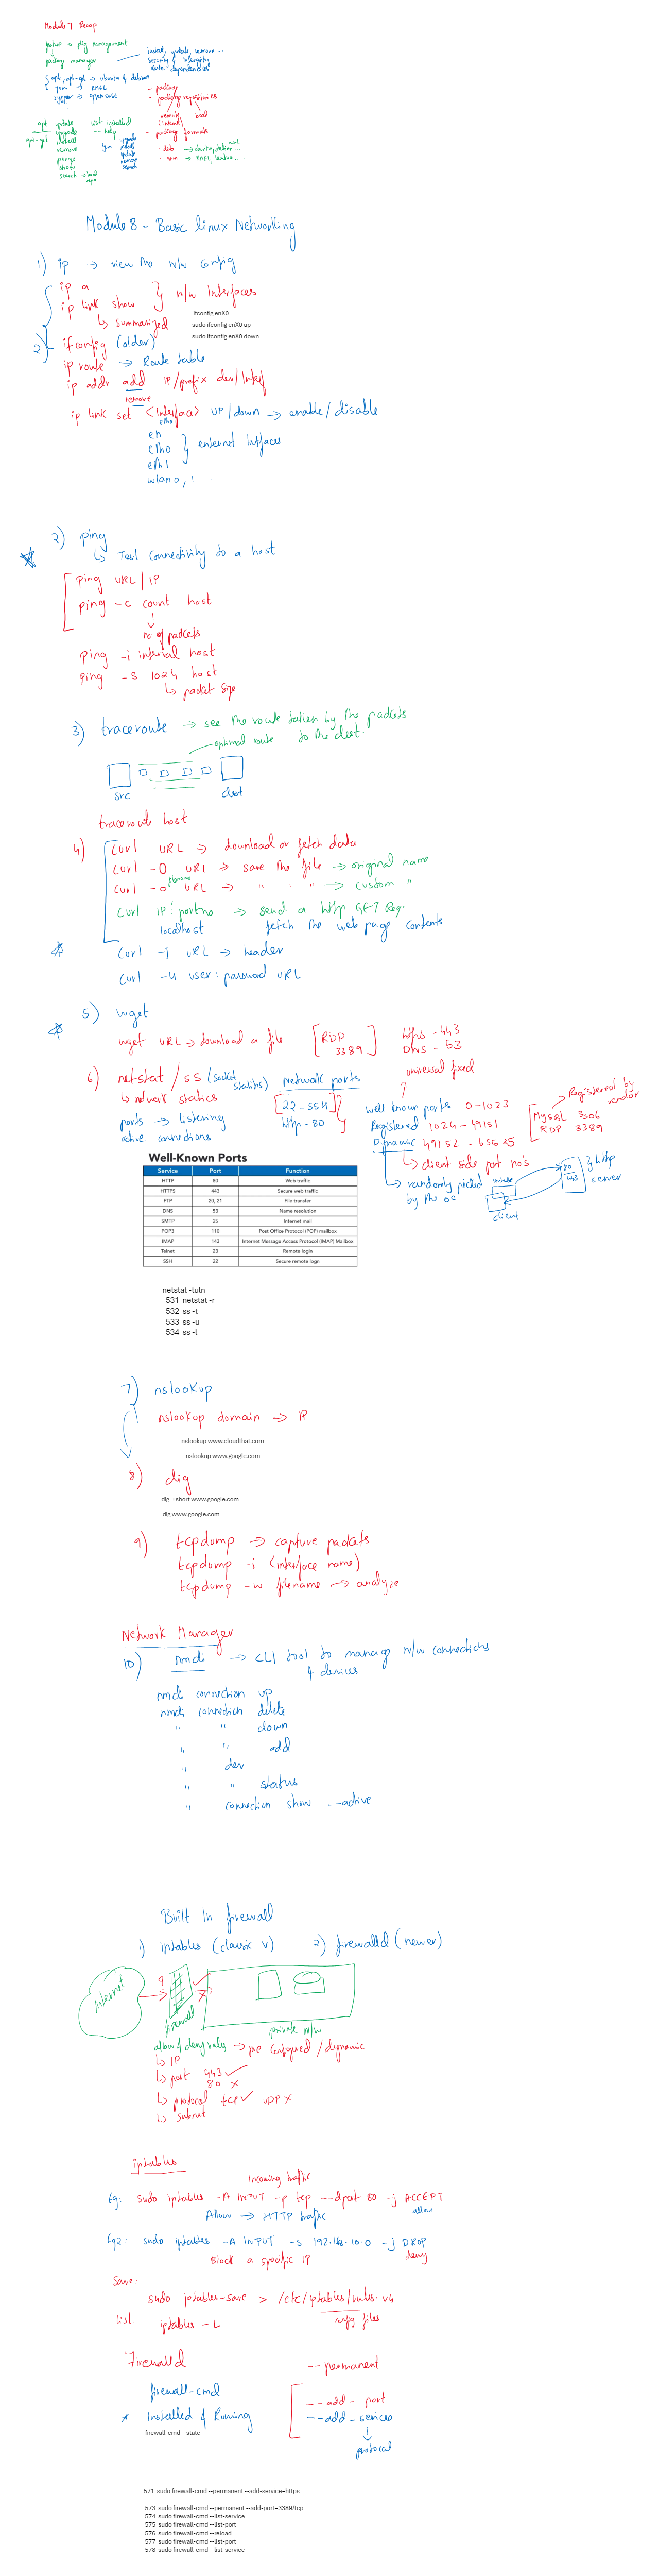 Module 7 Recap
pkg management
package manager
install, update, remove ...
security & integrity
dependencies
{ apt, apt-get → ubuntu & debian
yum → RHEL
zypper → opensuse
- package
- package repositories
remote local
(Internet)
- package formats
. deb → ubuntu, debian ...
. rpm → RHEL, centos ....
apt update list installed
apt-get upgrade --help
install
remove
purge
show
search → local repo
yum upgrade
install
update
remove
search
Module 8 - Basic linux Networking
1) ip → view the n/w config
ip a } n/w Interfaces
ip link show
↳ summarized
ifconfig enX0
sudo ifconfig enX0 up
sudo ifconfig enX0 down
2) ifconfig (older)
ip route → Route table
ip addr add IP/prefix dev/Interf
remove
ip link set <Interface> UP/down → enable/disable
eth0
en
eth0 } enternet Intfaces
eth1
wlan0, 1 ...
2) ping
↳ Test connectivity to a host
ping URL | IP
ping -c count host
↓
no of packets
ping -i interval host
ping -s 1024 host
↳ packet size
3) traceroute → see the route taken by the packets
to the dest.
optimal route
src dest
traceroute host
4) curl URL → download or fetch data
curl -O URL → save the file → original name
curl -o filename URL → " " " → custom "
curl IP:portno → send a http GET Req.
localhost fetch the web page contents
curl -I URL → header
curl -u user:password URL
5) wget
wget URL → download a file
[RDP
3389]
https - 443
DNS - 53
universal fixed
6) netstat / ss (socket statistics)
↳ network statics
ports → listening
active connections
Network ports
[22 - SSH]
http - 80
well known ports 0-1023
Registered 1024 - 49151
Dynamic 49152 - 65535
↳ client side port no's
↳ randomly picked
by the os
Registered by
vendor
MySQL 3306
RDP 3389
80
443
} http
server
client
Well-Known Ports
Service Port Function
HTTP 80 Web traffic
HTTPS 443 Secure web traffic
FTP 20, 21 File transfer
DNS 53 Name resolution
SMTP 25 Internet mail
POP3 110 Post Office Protocol (POP) mailbox
IMAP 143 Internet Message Access Protocol (IMAP) Mailbox
Telnet 23 Remote login
SSH 22 Secure remote logn
netstat -tuln
531 netstat -r
532 ss -t
533 ss -u
534 ss -l
7) nslookup
nslookup domain → IP
nslookup www.cloudthat.com
nslookup www.google.com
8) dig
dig +short www.google.com
dig www.google.com
9) tcpdump → capture packets
tcpdump -i (interface name)
tcpdump -w filename → analyze
Network Manager
10) nmcli → CLI tool to manag n/w connections
& devices
nmcli connection up
nmcli connection delete
" " down
" " add
" dev
" " status
" connection show --active
Built In firewall
1) iptables (classic v) 2) firewalld (newer)
Internet
firewall
private n/w
allow & deny rules → pre configured / dynamic
↳ IP
↳ port 443 ✓
80 ×
↳ protocol tcp ✓ UDP ×
↳ subnet
iptables
Incoming traffic
Eg: sudo iptables -A INPUT -p tcp --dport 80 -j ACCEPT
allow
Allow → HTTP traffic
Eg2: sudo iptables -A INPUT -s 192.168.10.0 -j DROP
deny
Block a specific IP
Save:
sudo iptables-save > /etc/iptables/rules.v4
config files
List: iptables -L
Firewalld
firewall-cmd
* Installed & Running
firewall-cmd --state
--permanent
--add-port
--add-services
↓
protocol
571 sudo firewall-cmd --permanent --add-service=https
573 sudo firewall-cmd --permanent --add-port=3389/tcp
574 sudo firewall-cmd --list-service
575 sudo firewall-cmd --list-port
576 sudo firewall-cmd --reload
577 sudo firewall-cmd --list-port
578 sudo firewall-cmd --list-service